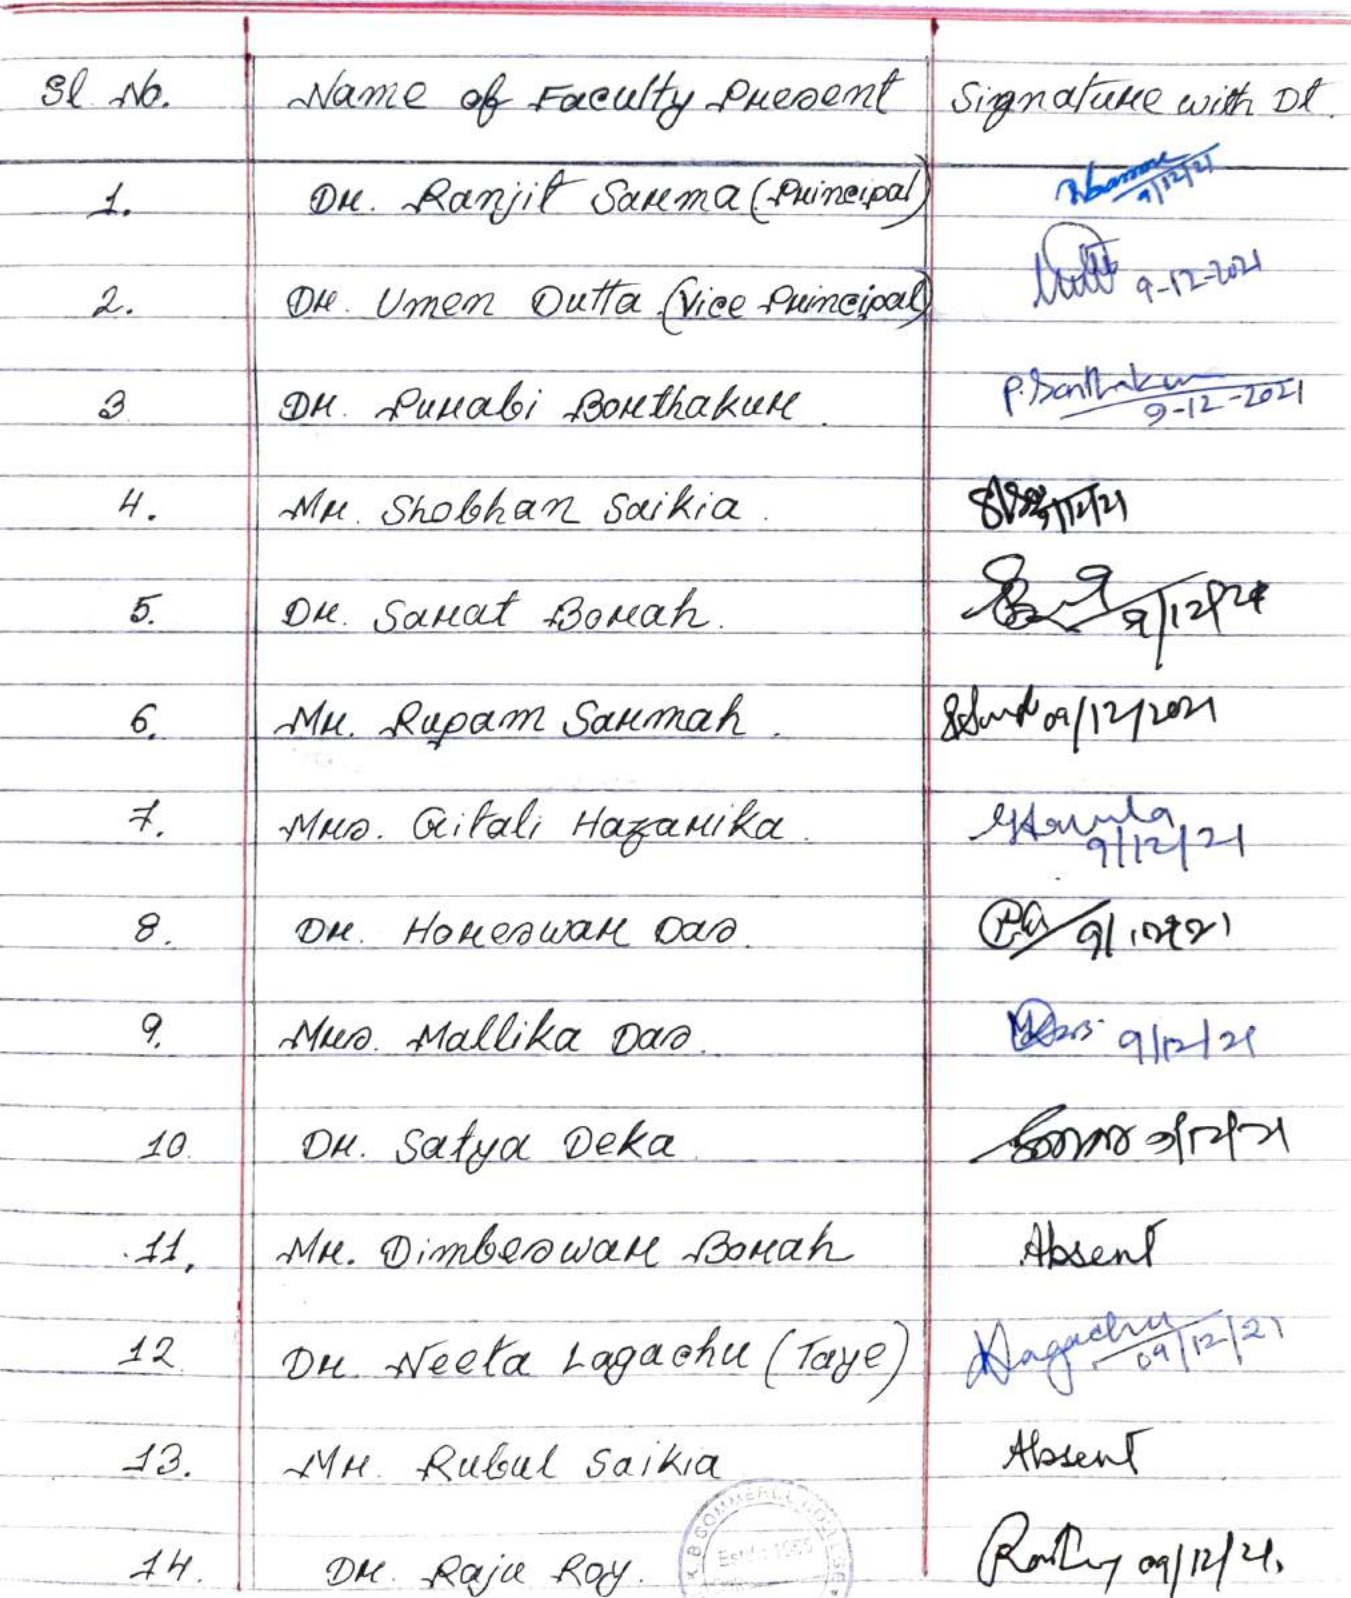 Sl. No. Name of Faculty Present Signature with Dt.
1. Dr. Ranjit Sarma (Principal) 9/12/21
2. Dr. Umen Dutta (Vice Principal) 9-12-2021
3 Dr. Purabi Borthakur. P. Borthakur 9-12-2021
4. Mr. Shobhan Saikia. 9/12/21
5. Dr. Sarat Borah. 9/12/21
6. Mr. Rupam Sarmah. 09/12/2021
7. Mrs. Gitali Hazarika. 9/12/21
8. Dr. Horeswar Das. 9/12/21
9. Mrs. Mallika Das. 9/12/21
10. Dr. Satya Deka 9/12/21
11. Mr. Dimbeswar Borah Absent
12 Dr. Neeta Lagachu (Taye) Lagachu 09/12/21
13. Mr. Rubul Saikia Absent
14. Dr. Raju Roy. 09/12/21.
K B COMMERCE COLLEGE
Estd: 1985